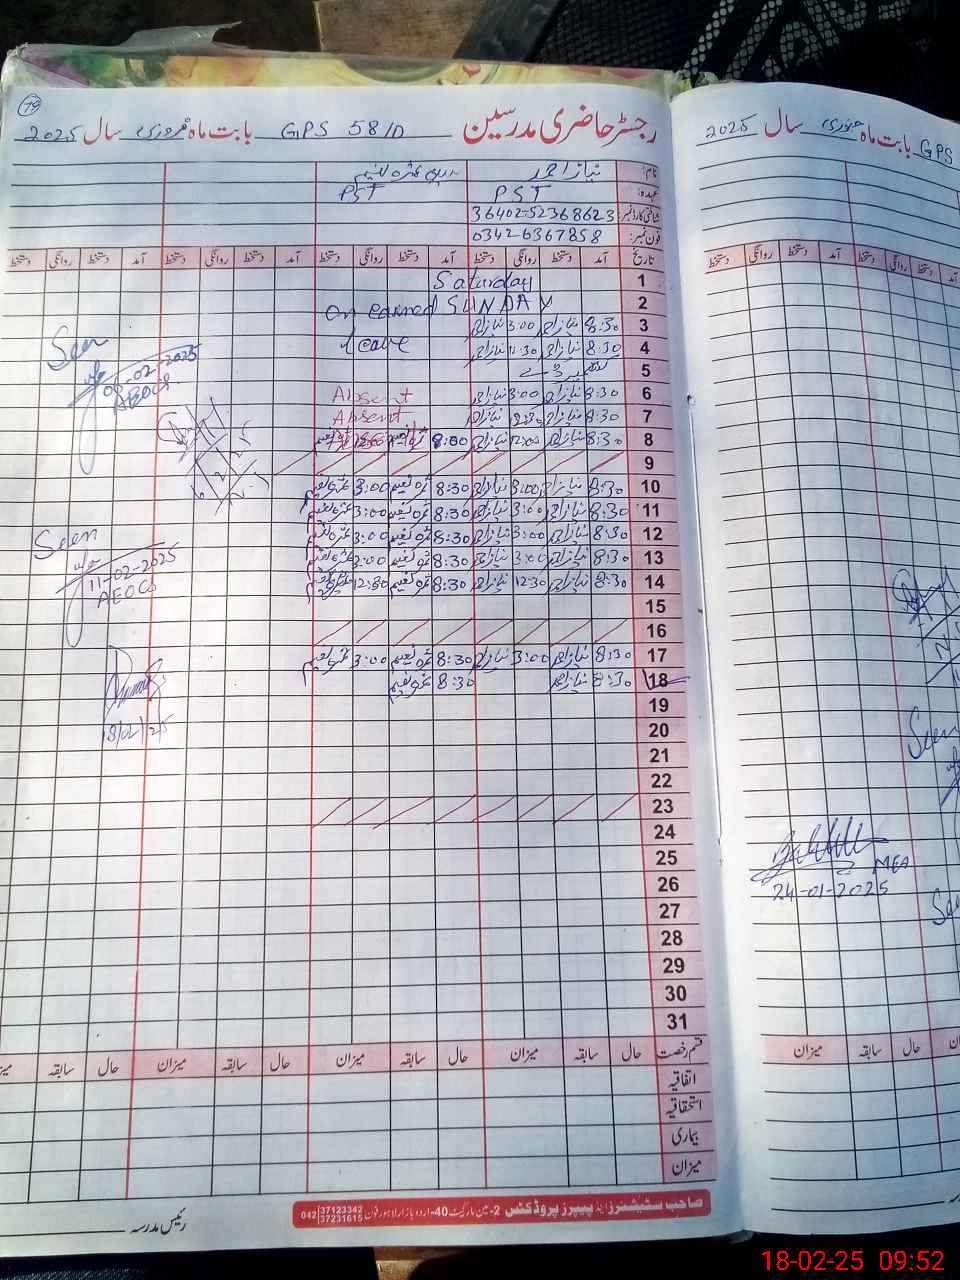 79
رجسٹر حاضری مدرسین GPS 58/D بابت ماہ فروری سال 2025
نام: نیاز احمد
عہدہ: PST PST
شناختی کارڈ نمبر: 36402-5236862-3
فون نمبر: 0342-6367858
تاریخ آمد دستخط روانگی دستخط آمد دستخط روانگی دستخط آمد دستخط روانگی دستخط آمد دستخط روانگی دستخط
1 Saturday
2 SUNDAY
on earned
leave
3 8:30 نیاز احمد 3:00 نیاز احمد
4 8:30 نیاز احمد 12:30 نیاز احمد
5 کشمیر ڈے
6 8:30 نیاز احمد 3:00 نیاز احمد Absent
7 8:30 نیاز احمد نیاز احمد Absent
8 8:30 نیاز احمد 12:00 نیاز احمد 8:00
9
10 8:30 نیاز احمد 3:00 نیاز احمد 8:30 3:00
11 8:30 نیاز احمد 3:00 نیاز احمد 8:30 3:00
12 8:30 نیاز احمد 3:00 نیاز احمد 8:30 3:00
13 8:30 نیاز احمد 3:00 نیاز احمد 8:30 3:00
14 8:30 نیاز احمد 12:30 نیاز احمد 8:30 12:30
15
16
17 8:30 نیاز احمد 3:00 نیاز احمد 8:30 3:00
18 8:30 نیاز احمد 8:30
19
20
21
22
23
24
25
26
27
28
29
30
31
Seen
06-02-2025
AEOCS
Seen
11-02-2025
AEOCS
18/02/25
قسم رخصت حال سابقہ میزان حال سابقہ میزان حال سابقہ میزان حال سابقہ میزان
اتفاقیہ
استحقاقیہ
بیماری
میزان
صاحب سٹیشنرز اینڈ پیپرز پروڈکٹس 2-مین مارکیٹ 40-اردو بازار لاہور فون 042 37123342 37231615
رئیس مدرسہ
GPS بابت ماہ جنوری سال 2025
آمد دستخط روانگی دستخط آمد دستخط روانگی دستخط
Seen
MEA
24-01-2025
حال سابقہ میزان
رئیس مدرسہ
18-02-25 09:52